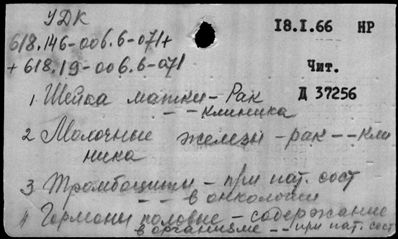 УДК
18.I.66 НР
618.146-006.6-071+
+618.19-006.6-071
Чит.
Д 37256
1 Шейка матки - Рак
-- клиника
2 Молочные железы - рак -- кли
ника
3 Тромбоциты - при пат. сост
-- в онкологии
4 Гормоны половые - содержание
в организме -- при пат. сост